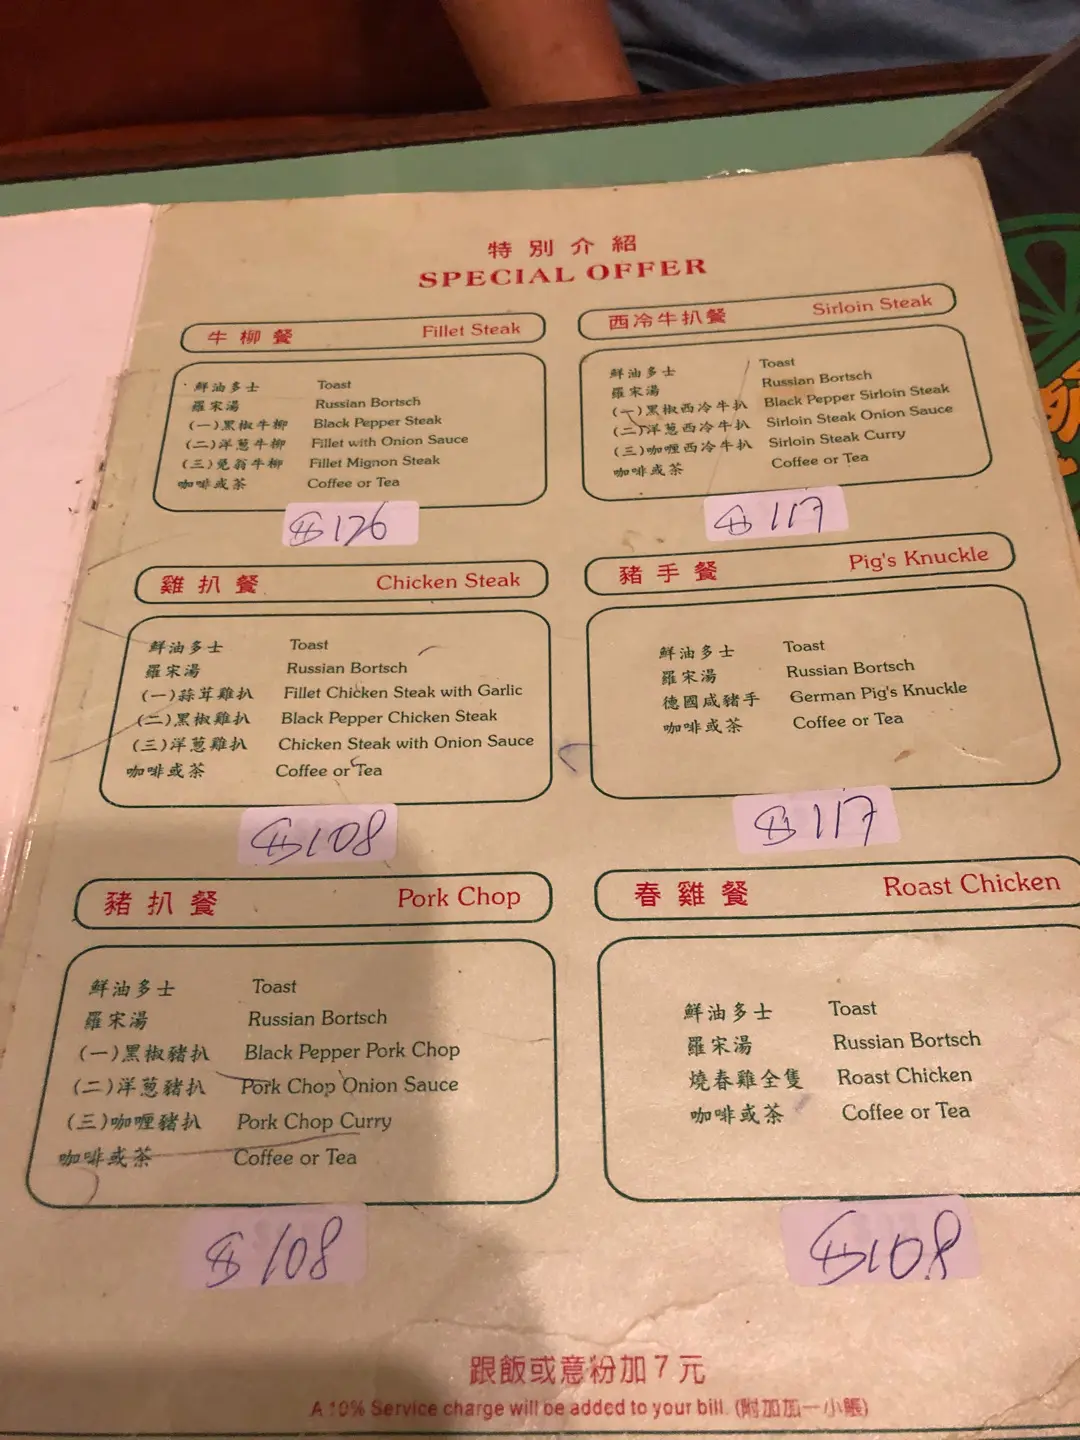 特別介紹
SPECIAL OFFER
牛柳餐 Fillet Steak
鮮油多士 Toast
羅宋湯 Russian Bortsch
(一)黑椒牛柳 Black Pepper Steak
(二)洋葱牛柳 Fillet with Onion Sauce
(三)免翁牛柳 Fillet Mignon Steak
咖啡或茶 Coffee or Tea
$126
西冷牛扒餐 Sirloin Steak
鮮油多士 Toast
羅宋湯 Russian Bortsch
(一)黑椒西冷牛扒 Black Pepper Sirloin Steak
(二)洋葱西冷牛扒 Sirloin Steak Onion Sauce
(三)咖喱西冷牛扒 Sirloin Steak Curry
咖啡或茶 Coffee or Tea
$117
雞扒餐 Chicken Steak
鮮油多士 Toast
羅宋湯 Russian Bortsch
(一)蒜茸雞扒 Fillet Chicken Steak with Garlic
(二)黑椒雞扒 Black Pepper Chicken Steak
(三)洋葱雞扒 Chicken Steak with Onion Sauce
咖啡或茶 Coffee or Tea
$108
豬手餐 Pig's Knuckle
鮮油多士 Toast
羅宋湯 Russian Bortsch
德國咸豬手 German Pig's Knuckle
咖啡或茶 Coffee or Tea
$117
豬扒餐 Pork Chop
鮮油多士 Toast
羅宋湯 Russian Bortsch
(一)黑椒豬扒 Black Pepper Pork Chop
(二)洋葱豬扒 Pork Chop Onion Sauce
(三)咖喱豬扒 Pork Chop Curry
咖啡或茶 Coffee or Tea
$108
春雞餐 Roast Chicken
鮮油多士 Toast
羅宋湯 Russian Bortsch
燒春雞全隻 Roast Chicken
咖啡或茶 Coffee or Tea
$108
跟飯或意粉加7元
A 10% Service charge will be added to your bill. (附加加一小賬)